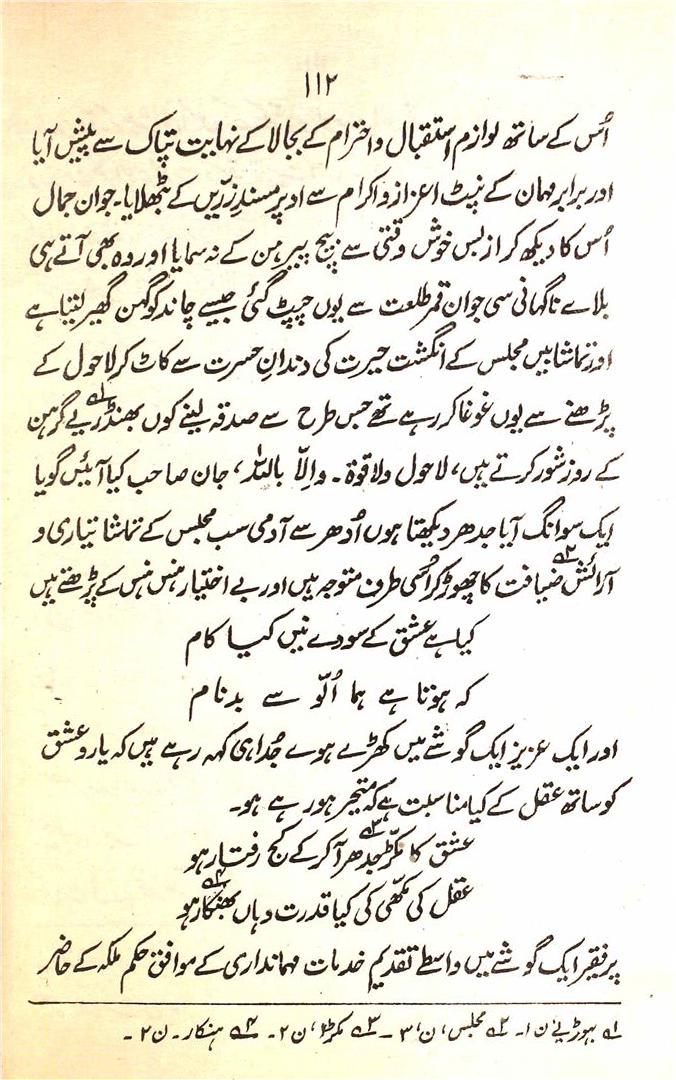 ۱۱۲
اُس کے ساتھ لوازم استقبال و احترام کے بجالا کے نہایت تپاک سے پیش آیا
اور برابر مہمان کے نپٹ اعزاز و اکرام سے اوپر مسندِ زرّیں کے بٹھلایا۔ جوان جمال
اُس کا دیکھ کر از بس خوش وقتی سے بیچ پیرہن کے نہ سمایا اور وہ بھی آتے ہی
بلاے ناگہانی سی جوان قمر طلعت سے یوں چپٹ گئی جیسے چاند کو گہن گھیر لیتا ہے
اور تماشا بیں مجلس کے انگشت حیرت کی دندانِ حسرت سے کاٹ کر لاحول کے
پڑھنے سے یوں غوغا کر رہے تھے جس طرح سے صدقہ لینے کوں بھنڈریے۱ گرہن
کے روز شور کرتے ہیں، لاحول ولا قوۃ۔ والّا باللہ، جان صاحب کیا آئیں گویا
ایک سوانگ آیا جدھر دیکھتا ہوں اُدھر سے آدمی سب مجلس کے تماشا تیاری و
آرائش۲ ضیافت کا چھوڑ کر اُسی طرف متوجہ ہیں اور بے اختیار ہنس ہنس کے پڑھتے ہیں
کیا ہے عشق کے سودے نیں کیا کام
کہ ہونا ہے ہما اُلّو سے بدنام
اور ایک عزیز ایک گوشے میں کھڑے ہوے جُدا ہی کہہ رہے ہیں کہ یارو عشق
کو ساتھ عقل کے کیا مناسبت ہے کہ متحیر ہو رہے ہو۔
عشق کا مکڑ۳ جدھر آ کر کے کج رفتار ہو
عقل کی مکّھی کی کیا قدرت وہاں بھنکار۴ ہو
پر فقیر ایک گوشے میں واسطے تقدیم خدمات مہمانداری کے موافق حکم ملکہ کے حاضر
۱ بہوڑیے ن ۱۔ ۲ مجلس، ن، ۳۔ ۳ مکڑا، ن ۲۔ ۴ ہنکار۔ ن ۲۔